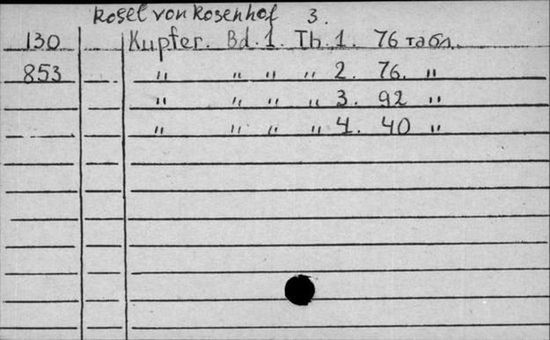 Rosel von Rosenhof 3.
130 Kupfer. Bd. 1. Th. 1. 76 табл.
853 " " " " 2. 76. "
" " " " 3. 92 "
" " " " 4. 40 "